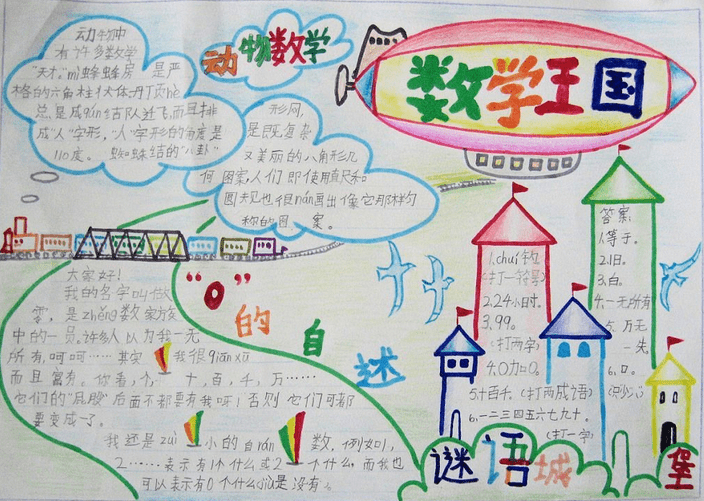 数学王国
动物数学
动物中
有许多数学
“天才”mì蜂蜂房 是严
格的六角柱状体丹顶hè
总是成qún结队迁飞，而且排
成“人”字形，“人”字形的角度是
110度。 蜘蛛结的“八卦”
形网，
是既复杂
又美丽的八角形几
何图案，人们即使用直尺和
圆规也很nán画出像它那样匀
称的图案。
“0”的自述
大家好！
我的名字叫做
零，是zhěng数家族
中的一员。许多人以为我一无
所有，呵呵……其实 我很qiān xū
而且富有。你看，个、一十，百，千，万……
它们的“屁股”后面不都要有我呀！否则它们可都
要变成了。
我还是zuì小的自rán数，例如1，
2……表示有1个什么或2个什么，而我也
可以表示有0个什么jiù是没有。
1.chuí钓
（打一符号）
2.24小时。
3.99。
（打两字）
4.0加0。
5.十百千。（打两成语）
6.一二三四五六七九十。
（打一字）
答案：
1.等于。
2.旧。
3.白。
4.一无所有
5.万无
一失。
6.口。
（只少八）
谜语城堡